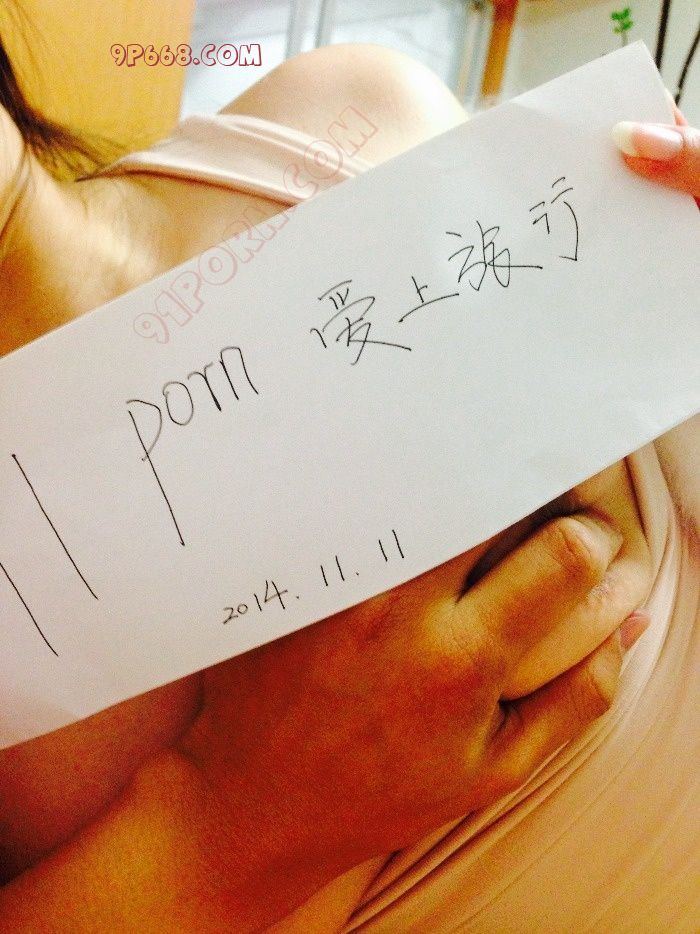 9P668.COM
91PORN.COM
porn 爱上旅行
2014.11.11